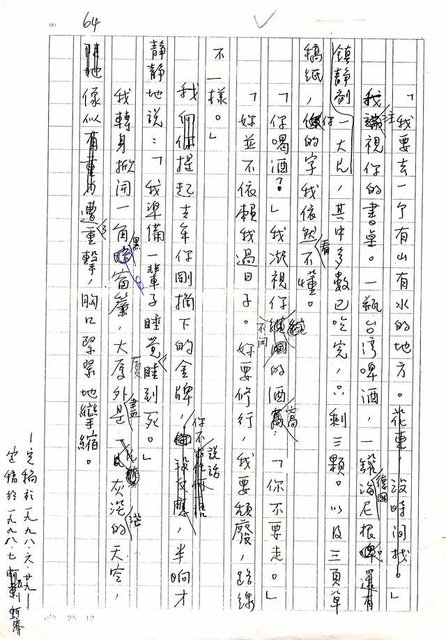 64
「我要去一个有山有水的地方。花東——沒時間找。」
我注視你的書桌。一瓶台湾啤酒，一罐海尼根 還有
鎮靜剂一大片，其中多數已吃完，只剩三顆。以及三頁草
稿紙，你的字我依然看不懂。
「你喝酒？」我凝視你 的酒 「你不要走。」
「妳並不依賴我過日子。妳要修行，我要頹廢，路線
不一樣。」
我 提起去年你剛摘下的金牌，你不說話，半响才
靜靜地說：「我準備一輩子睡覺睡到死。」
我轉身掀開一角黑窗簾，大厦外是 灰茫的天空，
像似 遭重擊，胸口緊緊地攣縮。
—完稿於一九九八·六·廿九—
定稿於一九九八·七
25 × 12